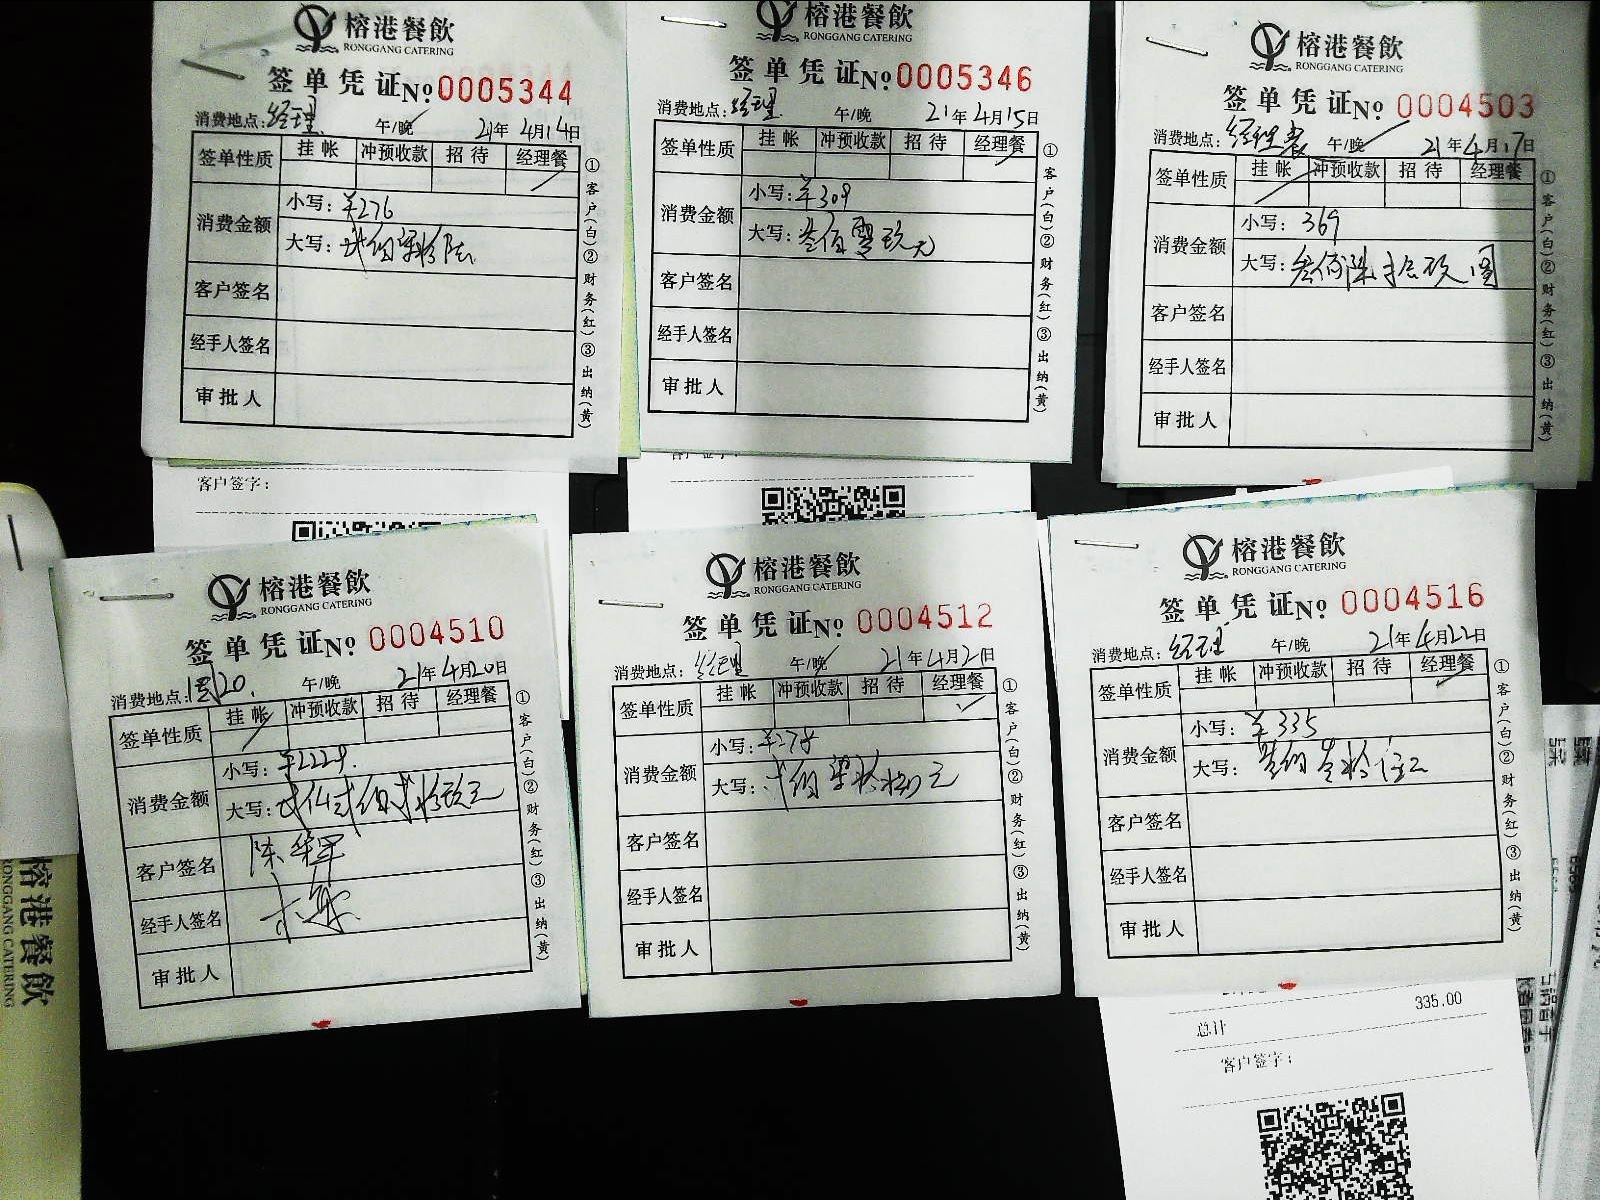 榕港餐飲
RONGGANG CATERING
签单凭证№ 0005344
消费地点:经理 午/晚 21年4月14日
签单性质 挂帐 冲预收款 招待 经理餐
消费金额 小写:¥276
大写:贰佰柒拾陆
客户签名
经手人签名
审批人
①客户(白)②财务(红)③出纳(黄)
客户签字:
榕港餐飲
RONGGANG CATERING
签单凭证№ 0005346
消费地点:经理 午/晚 21年4月15日
签单性质 挂帐 冲预收款 招待 经理餐
消费金额 小写:¥309
大写:叁佰零玖元
客户签名
经手人签名
审批人
①客户(白)②财务(红)③出纳(黄)
客户签字:
榕港餐飲
RONGGANG CATERING
签单凭证№ 0004503
消费地点:经理 午/晚 21年4月17日
签单性质 挂帐 冲预收款 招待 经理餐
消费金额 小写:369
大写:叁佰陆拾玖圆
客户签名
经手人签名
审批人
①客户(白)②财务(红)③出纳(黄)
榕港餐飲
RONGGANG CATERING
签单凭证№ 0004510
消费地点: 20. 午/晚 21年4月20日
签单性质 挂帐 冲预收款 招待 经理餐
消费金额 小写:¥2229.
大写:贰仟贰佰贰拾玖元
客户签名
经手人签名
审批人
①客户(白)②财务(红)③出纳(黄)
榕港餐飲
RONGGANG CATERING
签单凭证№ 0004512
消费地点:经理 午/晚 21年4月21日
签单性质 挂帐 冲预收款 招待 经理餐
消费金额 小写:¥278
大写:贰佰柒拾捌元
客户签名
经手人签名
审批人
①客户(白)②财务(红)③出纳(黄)
榕港餐飲
RONGGANG CATERING
签单凭证№ 0004516
消费地点:经理 午/晚 21年4月22日
签单性质 挂帐 冲预收款 招待 经理餐
消费金额 小写:¥335
大写:叁佰叁拾伍元
客户签名
经手人签名
审批人
①客户(白)②财务(红)③出纳(黄)
335.00
总计
客户签字:
榕港餐飲
RONGGANG CATERING